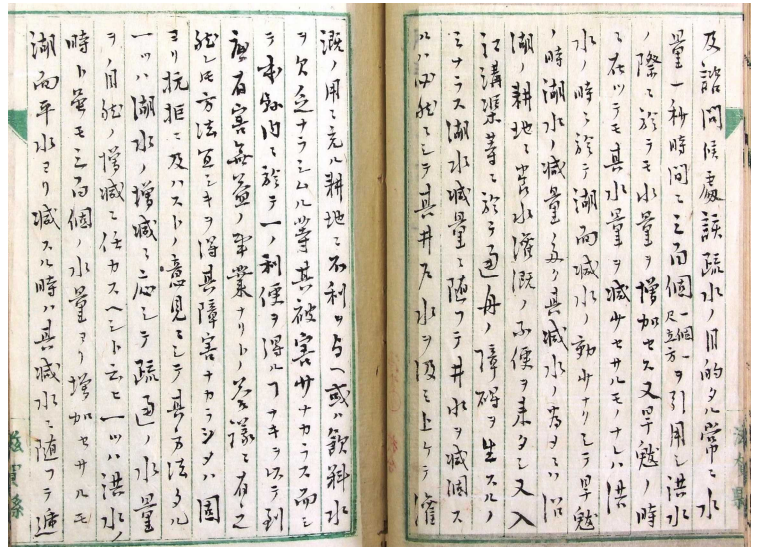 及諮問候處該疏水ノ目的タル常ニ水
量一秒時間ニ三百個一個一尺立方ヲ引用シ洪水
ノ際ニ於テモ水量ヲ増加セス又旱魃ノ時
ニ在ツテモ其水量ヲ減少セサルモノナレハ洪
水ノ時ニ於テ湖面減水ノ効少ナリシテ旱魃
ノ時湖水ノ減量多ク其減水ノ為メニハ沿
湖ノ耕地ニ灌漑ノ不便ヲ来タシ又入
江溝渠等ニ於テ通舟ノ障碍ヲ生スルノ
ミナラス湖水減量ニ随フテ井水ヲ減個ス
ルハ必然ニシテ其井戸水ヲ汲ミ上ケテ灌
漑ノ用ニ充ル耕地ニ不利ヲ与ヘ或ハ飲料水
ヲ欠乏ナラシムル等其被害少ナカラス而シ
テ本縣内ニ於テ一ノ利便ヲ得ルコナキヲ以テ到
底有害無益ノ事業ナリトノ答議ニ有之
然レ𪜈方法宜シキヲ得其障害ナカラシメハ固
ヨリ抗拒ニ及ハストノ意見ニシテ其方法タル
一ツハ湖水ノ増減ニ応シテ疏通ノ水量
ヲ自然ノ増減ニ任カスヘシト云ヒ一ツハ洪水ノ
時ト雖モ三百個ノ水量ヨリ増加セサルモ
湖面平水ヨリ減スル時ハ其減水ニ随フテ逓
滋賀縣
滋賀縣